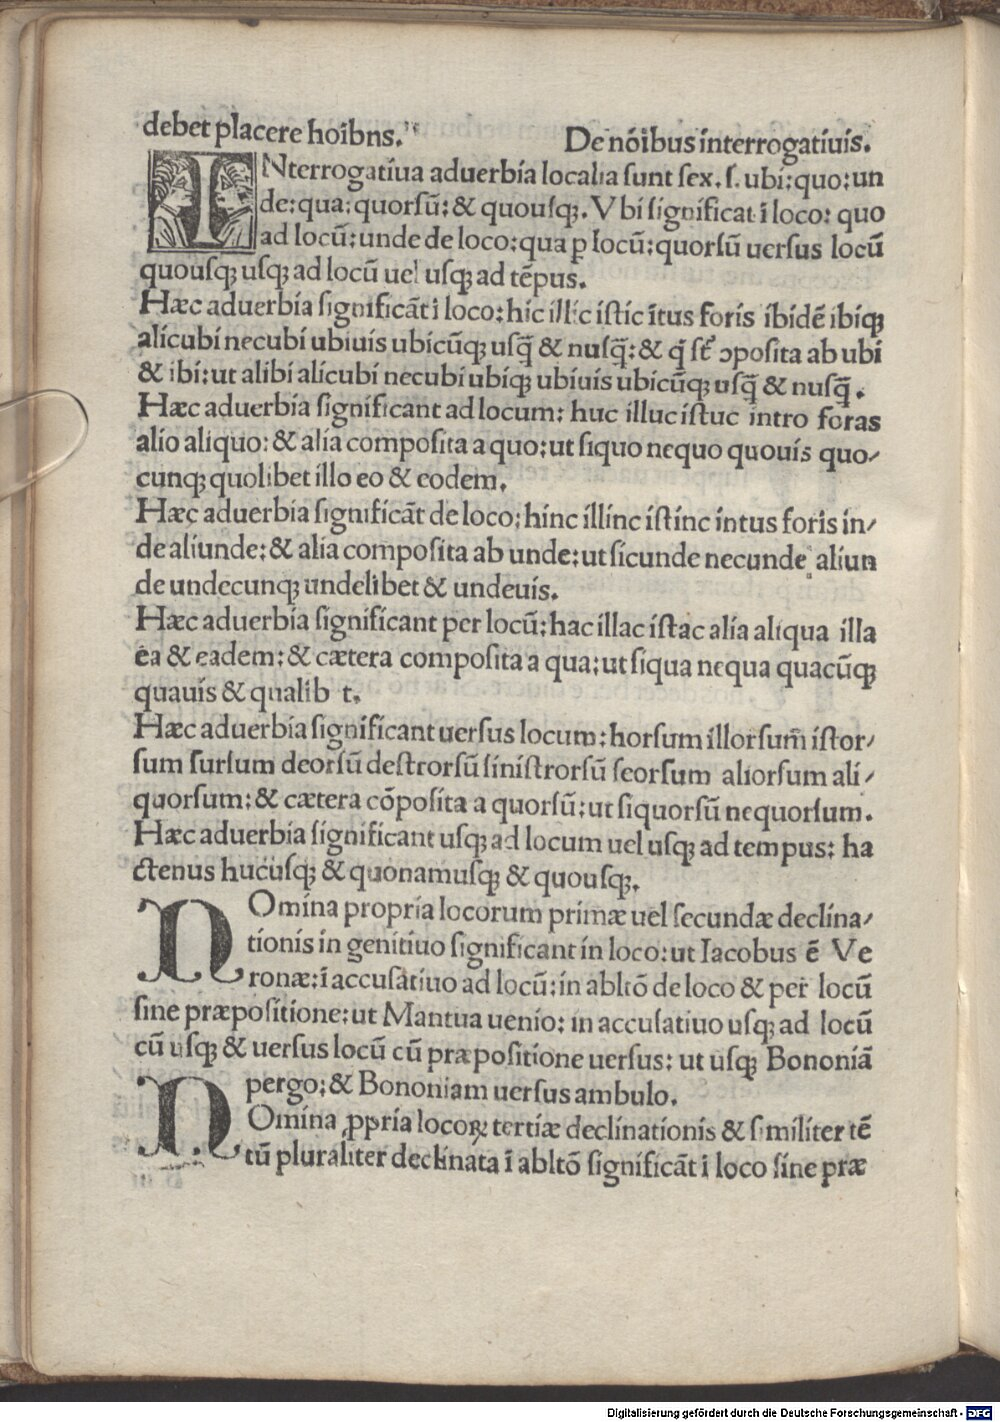 debet placere hoībns.
De nōībus interrogatiuis.
INterrogatiua aduerbia localia sunt sex. s. ubi: quo: un
de: qua: quorsū: & quousq̃. Vbi significat ī loco: quo
ad locū: unde de loco: qua ꝑ locū: quorsū uersus locū
quousqꝫ usqꝫ ad locū uel usqꝫ ad tēpus.
Hæc aduerbia significāt ī loco: hic illic istic ītus foris ibidē ibiqꝫ
alicubi necubi ubiuis ubicūqꝫ usq̄ & nusq̄: & q̄ st̄ ↄposita ab ubi
& ibi: ut alibi alicubi necubi ubiqꝫ ubiuis ubicūqꝫ usq̄ & nusq̄.
Hæc aduerbia significant ad locum: huc illuc istuc intro foras
alio aliquo: & alia composita a quo: ut siquo nequo quouis quo⸗
cunqꝫ quolibet illo eo & eodem.
Hæc aduerbia significāt de loco: hinc illinc istinc intus foris in⸗
de aliunde: & alia composita ab unde: ut sicunde necunde aliun
de undecunqꝫ undelibet & undeuis.
Hæc aduerbia significant per locū: hac illac istac alia aliqua illa
ea & eadem: & cætera composita a qua: ut siqua nequa quacūqꝫ
quauis & qualib t.
Hæc aduerbia significant uersus locum: horsum illorsum̄ istor⸗
sum sursum deorsū destrorsū sinistrorsū seorsum aliorsum ali⸗
quorsum: & cætera cōposita a quorsū: ut siquorsū nequorsum.
Hæc aduerbia significant usqꝫ ad locum uel usqꝫ ad tempus: ha
ctenus hucusqꝫ & quonamusqꝫ & quousqꝫ.
NOmina propria locorum primæ uel secundæ declina⸗
tionis in genitiuo significant in loco: ut Iacobus ē Ve
ronæ: ī accusatiuo ad locū: in abltō de loco & per locū
sine præpositione: ut Mantua uenio: in accusatiuo usqꝫ ad locū
cū usqꝫ & uersus locū cū præpositione uersus: ut usqꝫ Bononiā
pergo: & Bononiam uersus ambulo.
NOmina ꝓpria locoꝝ tertiæ declinationis & similiter tē
tū pluraliter declinata ī abltō significāt ī loco sine præ
Digitalisierung gefördert durch die Deutsche Forschungsgemeinschaft - DFG